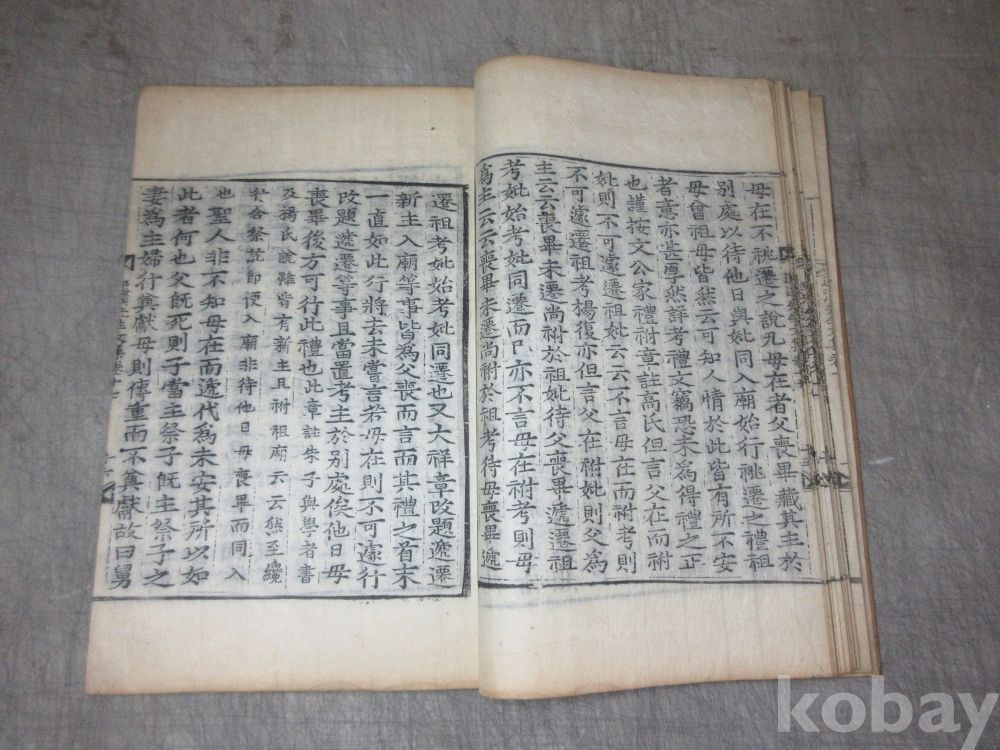 母在不祧遷之說凡母在者父喪畢藏其主於
別處以待他日與妣同入廟始行祧遷之禮祖
母曾祖母皆然云可知人情於此皆有所不安
者意亦甚厚然詳考禮文竊恐未爲得禮之正
也謹按文公家禮祔章註高氏但言父在而祔
妣則不可遽遷祖妣云云不言母在而祔考則
不可遽遷祖考楊復亦但言父在祔妣則父爲
主云云喪畢未遷尚祔於祖妣待父喪畢遞遷祖
考妣始考妣同遷而已亦不言母在祔考則母
爲主云云喪畢未遷尚祔於祖考待母喪畢遞
遷祖考妣始考妣同遷也又大祥章改題遞遷
新主入廟等事皆爲父喪而言而其禮之首末
一直如此行將去未嘗言若母在則不可遽行
改題遞遷等事且當置考主於別處俟他日母
喪畢後方可行此禮也此章註朱子與學者書
及楊氏說雖皆有新主且祔祖廟云云然至纔
合祭訖卽便入廟非待他日母喪畢而同入
也聖人非不知母在而遞代爲未安其所以如
此者何也父旣死則子當主祭子旣主祭子之
妻爲主婦行奠獻母則傳重而不奠獻故曰舅
kobay